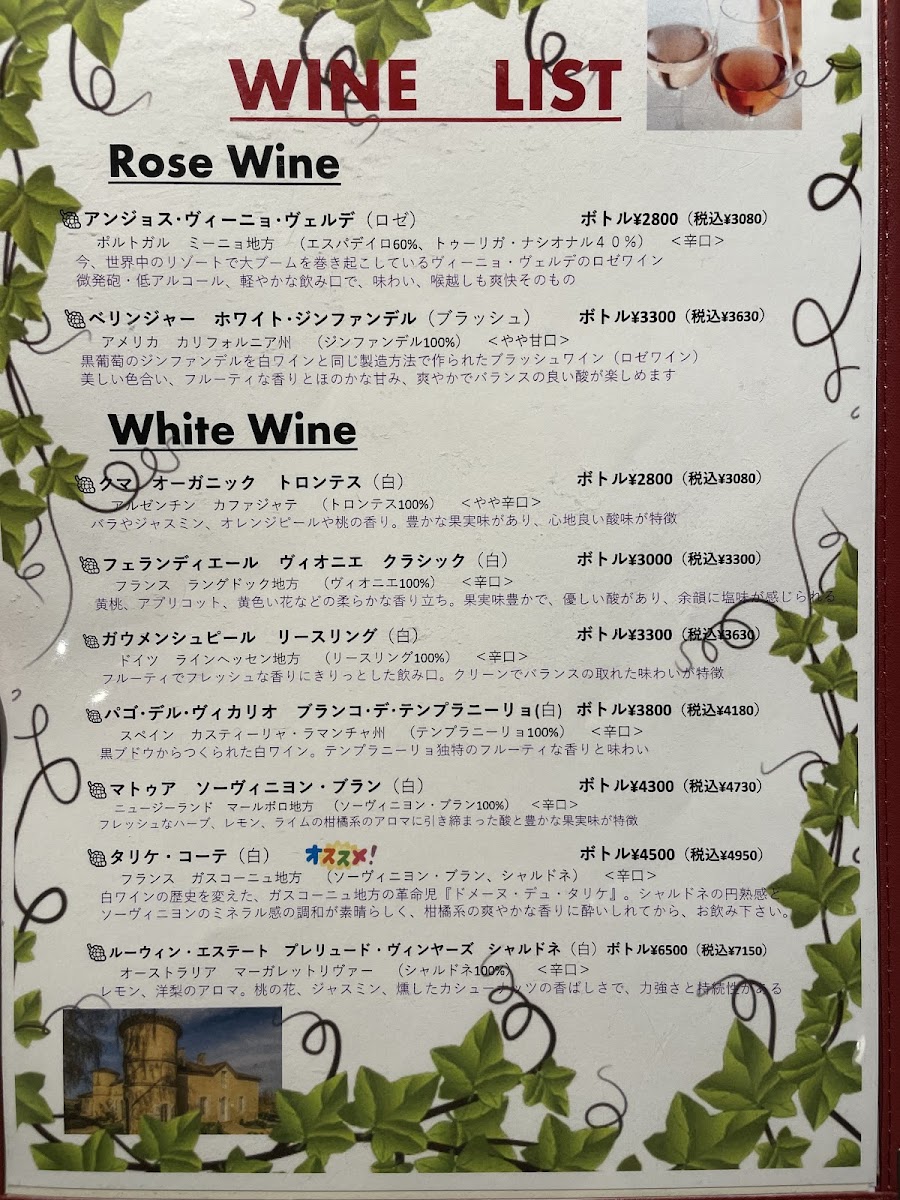 WINE LIST
Rose Wine
アンジョス・ヴィーニョ・ヴェルデ（ロゼ） ボトル¥2800（税込¥3080）
ポルトガル ミーニョ地方 （エスパデイロ60%、トゥーリガ・ナシオナル４０％） ＜辛口＞
今、世界中のリゾートで大ブームを巻き起こしているヴィーニョ・ヴェルデのロゼワイン
微発砲・低アルコール、軽やかな飲み口で、味わい、喉越しも爽快そのもの
ベリンジャー ホワイト・ジンファンデル（ブラッシュ） ボトル¥3300（税込¥3630）
アメリカ カリフォルニア州 （ジンファンデル100%） ＜やや甘口＞
黒葡萄のジンファンデルを白ワインと同じ製造方法で作られたブラッシュワイン（ロゼワイン）
美しい色合い、フルーティな香りとほのかな甘み、爽やかでバランスの良い酸が楽しめます
White Wine
クマ オーガニック トロンテス（白） ボトル¥2800（税込¥3080）
アルゼンチン カファジャテ （トロンテス100%） ＜やや辛口＞
バラやジャスミン、オレンジピールや桃の香り。豊かな果実味があり、心地良い酸味が特徴
フェランディエール ヴィオニエ クラシック（白） ボトル¥3000（税込¥3300）
フランス ラングドック地方 （ヴィオニエ100%） ＜辛口＞
黄桃、アプリコット、黄色い花などの柔らかな香り立ち。果実味豊かで、優しい酸があり、余韻に塩味が感じられる
ガウメンシュピール リースリング（白） ボトル¥3300（税込¥3630）
ドイツ ラインヘッセン地方 （リースリング100%） ＜辛口＞
フルーティでフレッシュな香りにきりっとした飲み口。クリーンでバランスの取れた味わいが特徴
パゴ・デル・ヴィカリオ ブランコ・デ・テンプラニーリョ(白) ボトル¥3800（税込¥4180）
スペイン カスティーリャ・ラマンチャ州 （テンプラニーリョ100%） ＜辛口＞
黒ブドウからつくられた白ワイン。テンプラニーリョ独特のフルーティな香りと味わい
マトゥア ソーヴィニヨン・ブラン（白） ボトル¥4300（税込¥4730）
ニュージーランド マールボロ地方 （ソーヴィニヨン・ブラン100%） ＜辛口＞
フレッシュなハーブ、レモン、ライムの柑橘系のアロマに引き締まった酸と豊かな果実味が特徴
タリケ・コーテ（白） オススメ! ボトル¥4500（税込¥4950）
フランス ガスコーニュ地方 （ソーヴィニヨン・ブラン、シャルドネ） ＜辛口＞
白ワインの歴史を変えた、ガスコーニュ地方の革命児『ドメーヌ・デュ・タリケ』。シャルドネの円熟感と
ソーヴィニヨンのミネラル感の調和が素晴らしく、柑橘系の爽やかな香りに酔いしれてから、お飲み下さい。
ルーウィン・エステート プレリュード・ヴィンヤーズ シャルドネ（白） ボトル¥6500（税込¥7150）
オーストラリア マーガレットリヴァー （シャルドネ100%） ＜辛口＞
レモン、洋梨のアロマ。桃の花、ジャスミン、燻したカシューナッツの香ばしさで、力強さと持続性がある